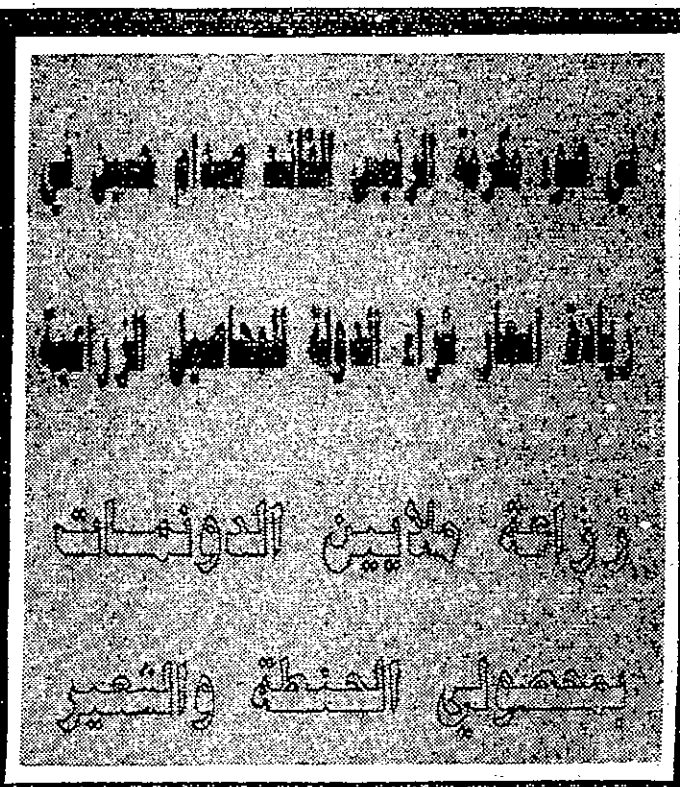 الرئيس القائد صدام حسين في
زيادة اسعار شراء الدولة للمحاصيل الزراعية
زراعة ملايين الدونمات
بمحصولي الحنطة والشعير